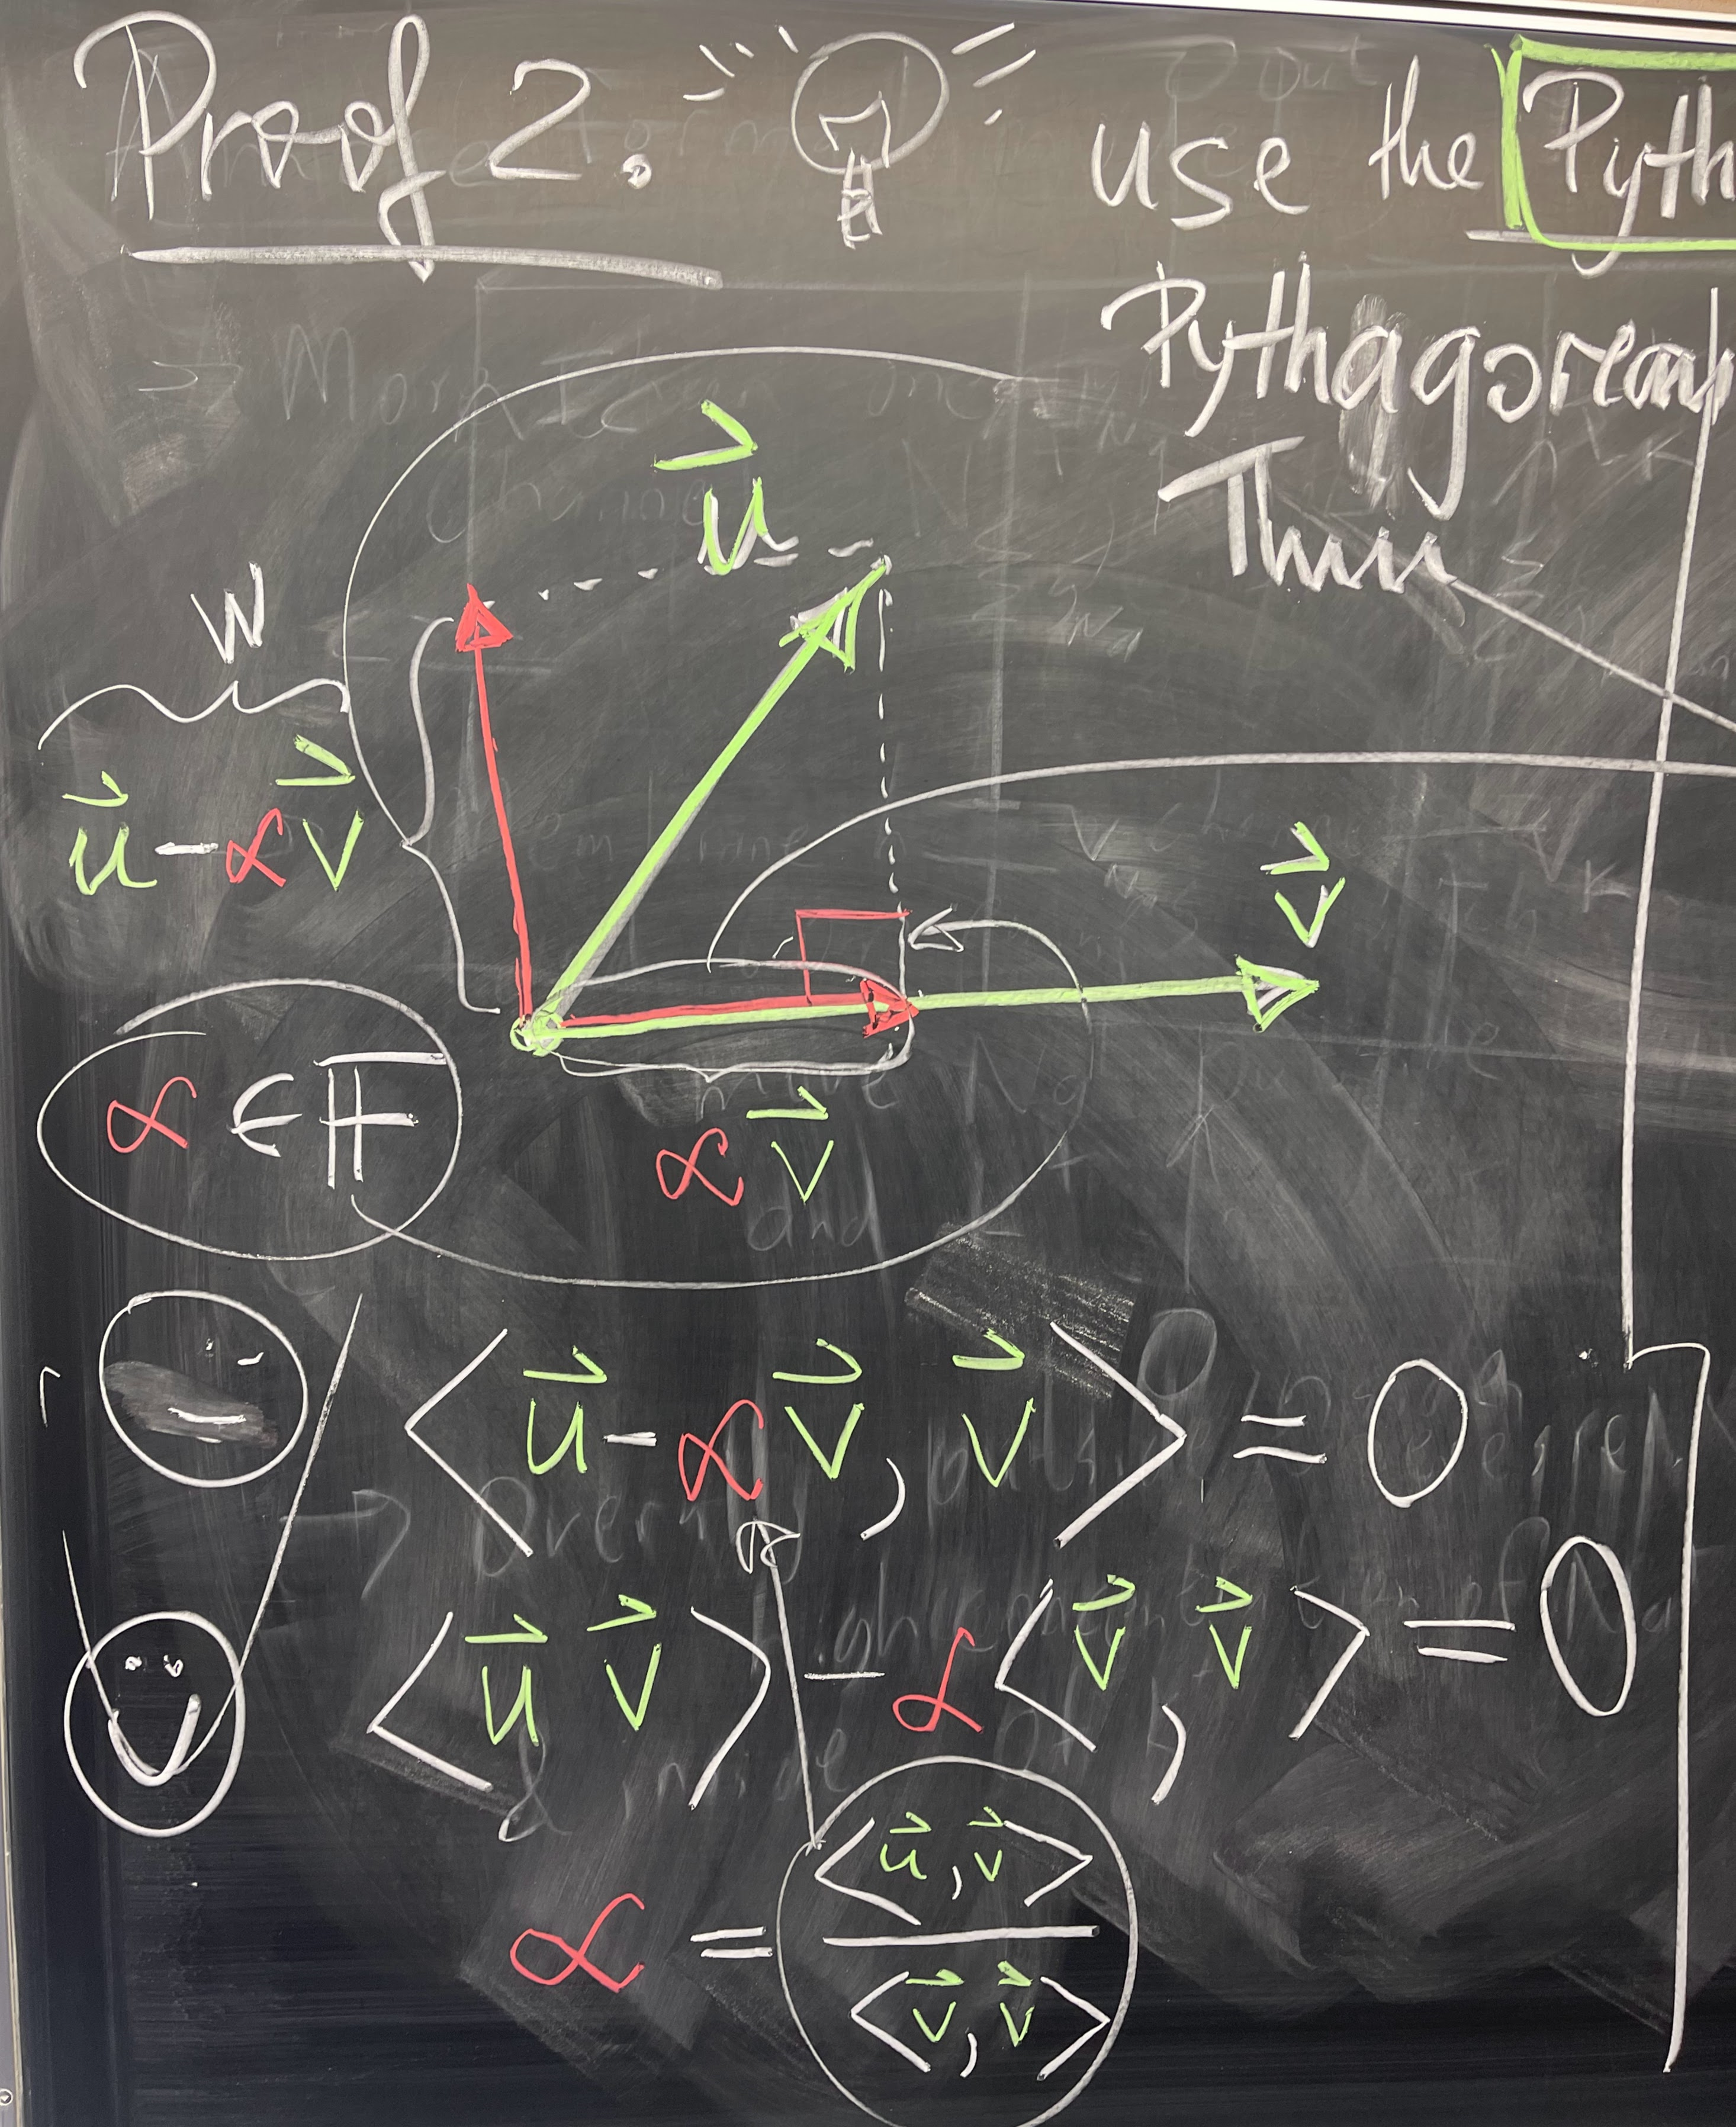 Proof 2: use the Pyth
Pythagorean
Thm
u⃗
w
u⃗ - αv⃗
v⃗
α ∈ F
αv⃗
⟨u⃗ - αv⃗, v⃗⟩ = 0
⟨u⃗ v⃗⟩ - α⟨v⃗, v⃗⟩ = 0
α = ⟨u⃗, v⃗⟩ / ⟨v⃗, v⃗⟩